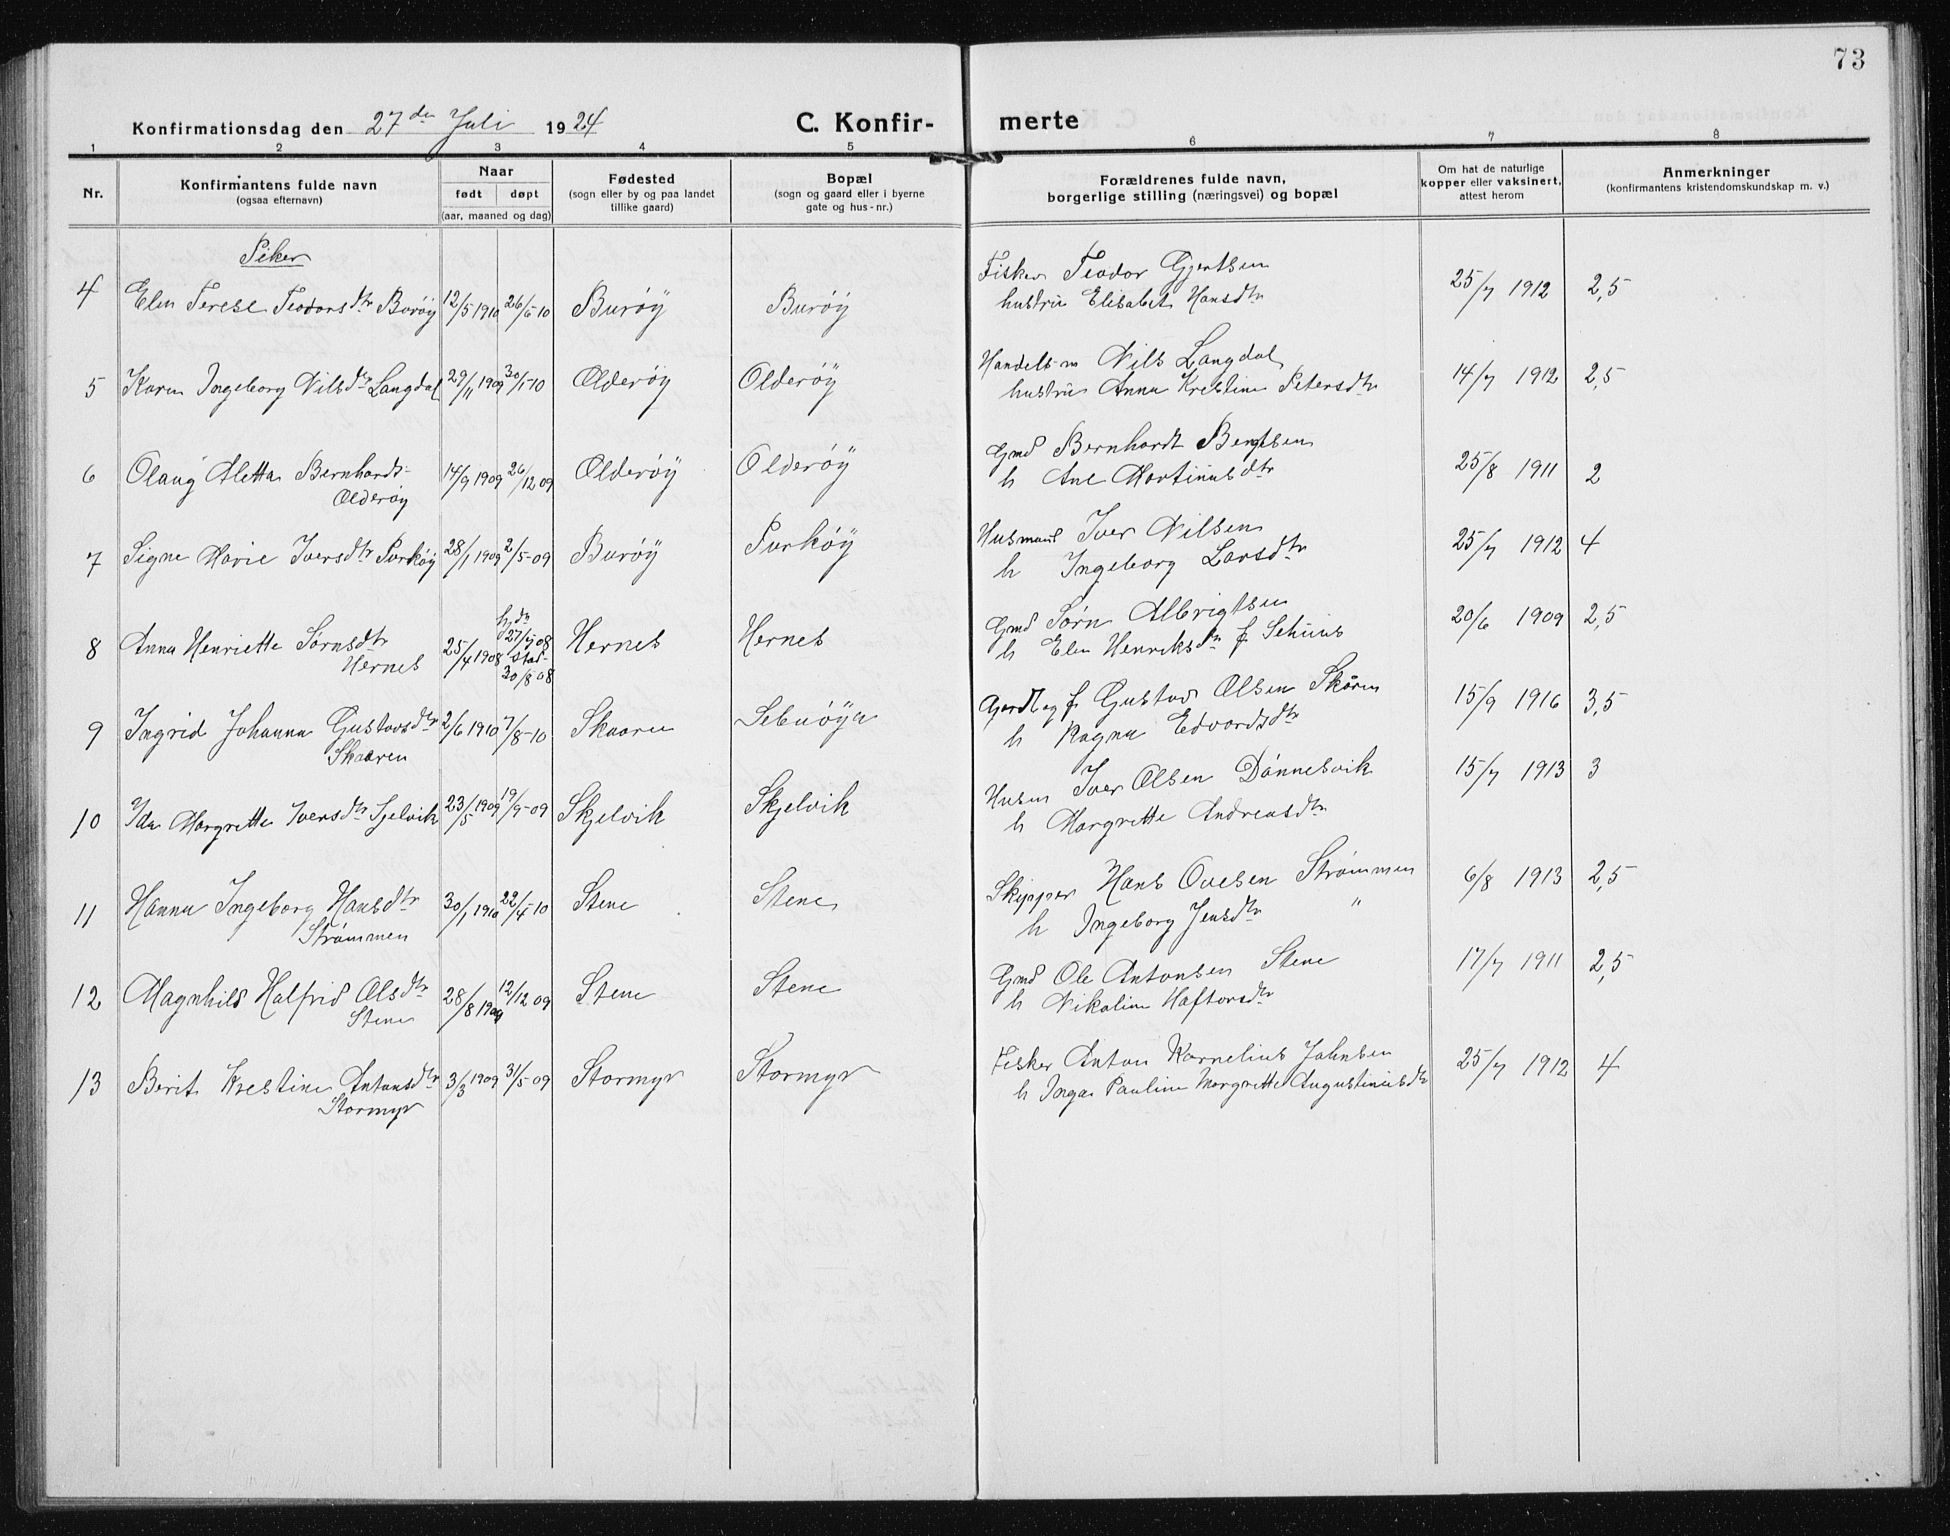 73
Konfirmationsdag den 27de Juli 1924 C. Konfir- merte
1 2 3 4 5 6 7 8
Nr.
Konfirmantens fulde navn
(ogsaa efternavn)
Naar
født døpt
(aar, maaned og dag)
Fødested
(sogn eller by og paa landet
tillike gaard)
Bopæl
(sogn og gaard eller i byerne
gate og hus-nr.)
Forældrenes fulde navn,
borgerlige stilling (næringsvei) og bopæl
Om hat de naturlige
kopper eller vaksinert,
attest herom
Anmerkninger
(konfirmantens kristendomskundskap m. v.)
Piker
4 Elen Terese Teodorsdtr Burøy 12/5 1910 26/6 10 Burøÿ Burøÿ Fisker Teodor Gjertsen 25/7 1912 2,5
hustru Elisabet Hansdtr
5 Karen Ingeborg Nilsdtr Langdal 29/11 1909 30/1-10 Olderøy Olderøÿ Handelsm Nils Langdal 14/7 1912 2,5
hustru Anna Kristine Petersdtr
6 Olaug Aletta Bernhards- 14/9 1909 26/12 09 Olderøÿ Olderøÿ Gmd Bernhardt Bentsen 25/8 1911 2
Olderøy
h Ane Martinusdtr
7 Signe Marie Iversdtr Purkøy 28/1 1909 2/5-09 Burøÿ Purkøÿ Husmand Iver Nilsen 25/7 1912 4
h Ingeborg Larsdtr
8 Anna Henriette Sørnsdtr 25/4 1908 hjdp 27/5 08 Hernes Hernes Gmd Sørn Albrigtsen 20/6 1909 2,5
Hernes stad- 30/8 08 h Elen Henriksdtr f. Schius
9 Ingrid Johanna Gustavsdtr 2/6 1910 7/8-10 Skaaren Sebuøya Gardbr og f. Gustav Olsen Skåren 15/9 1916 3,5
Skaaren
h Ragna Edvardsdtr
10 Ida Margrette Iversdtr Sjelvik 23/5 1909 19/9-09 Skjelvik Skjelvik Husm Iver Olsen Dønnesvik 15/7 1913 3
h Margrette Andreasdtr
11 Hanna Ingeborg Hansdtr 30/1 1910 22/4-10 Stene Stene Skipper Hans Ovesen Strømmen 6/8 1913 2,5
Strømmen
h Ingeborg Jensdtr "
12 Magnhild Halfrid Olsdtr 28/8 1909 12/12 09 Stene Stene Gmd Ole Antonsen Stene 17/7 1911 2,5
Stene
h Nikoline Haftorsdtr
13 Berit Kristine Antonsdtr 3/3 1909 31/5 09 Stormyr Stormyr Fisker Anton Kornelius Johnsen 25/7 1912 4
Stormyr
h Inga Pauline Margrette Augustinusdtr